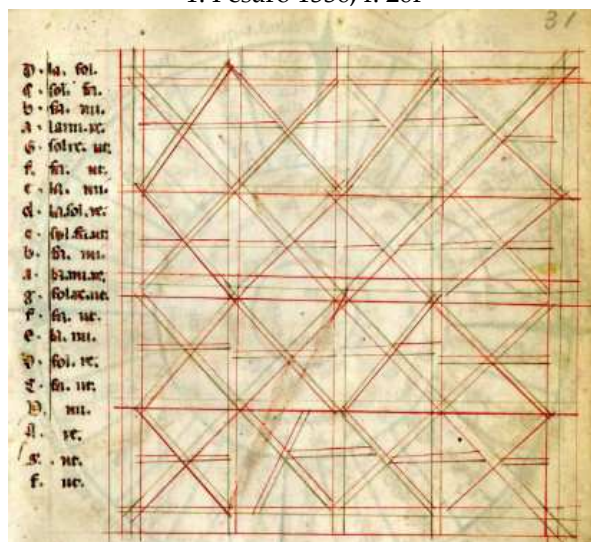 Pesaro
31
D. la. sol.
c. sol. fa.
b. fa. mi.
a. lami.re.
G. solre. ut.
f. fa. ut.
e. la. mi.
d. la.sol.re.
c. sol.fa.ut
b. fa. mi.
a. lami.re.
g. solre.ut.
f. fa. ut.
e. la. mi.
D. sol. re.
C. fa. ut.
mi.
A. re.
ut.
f. ut.